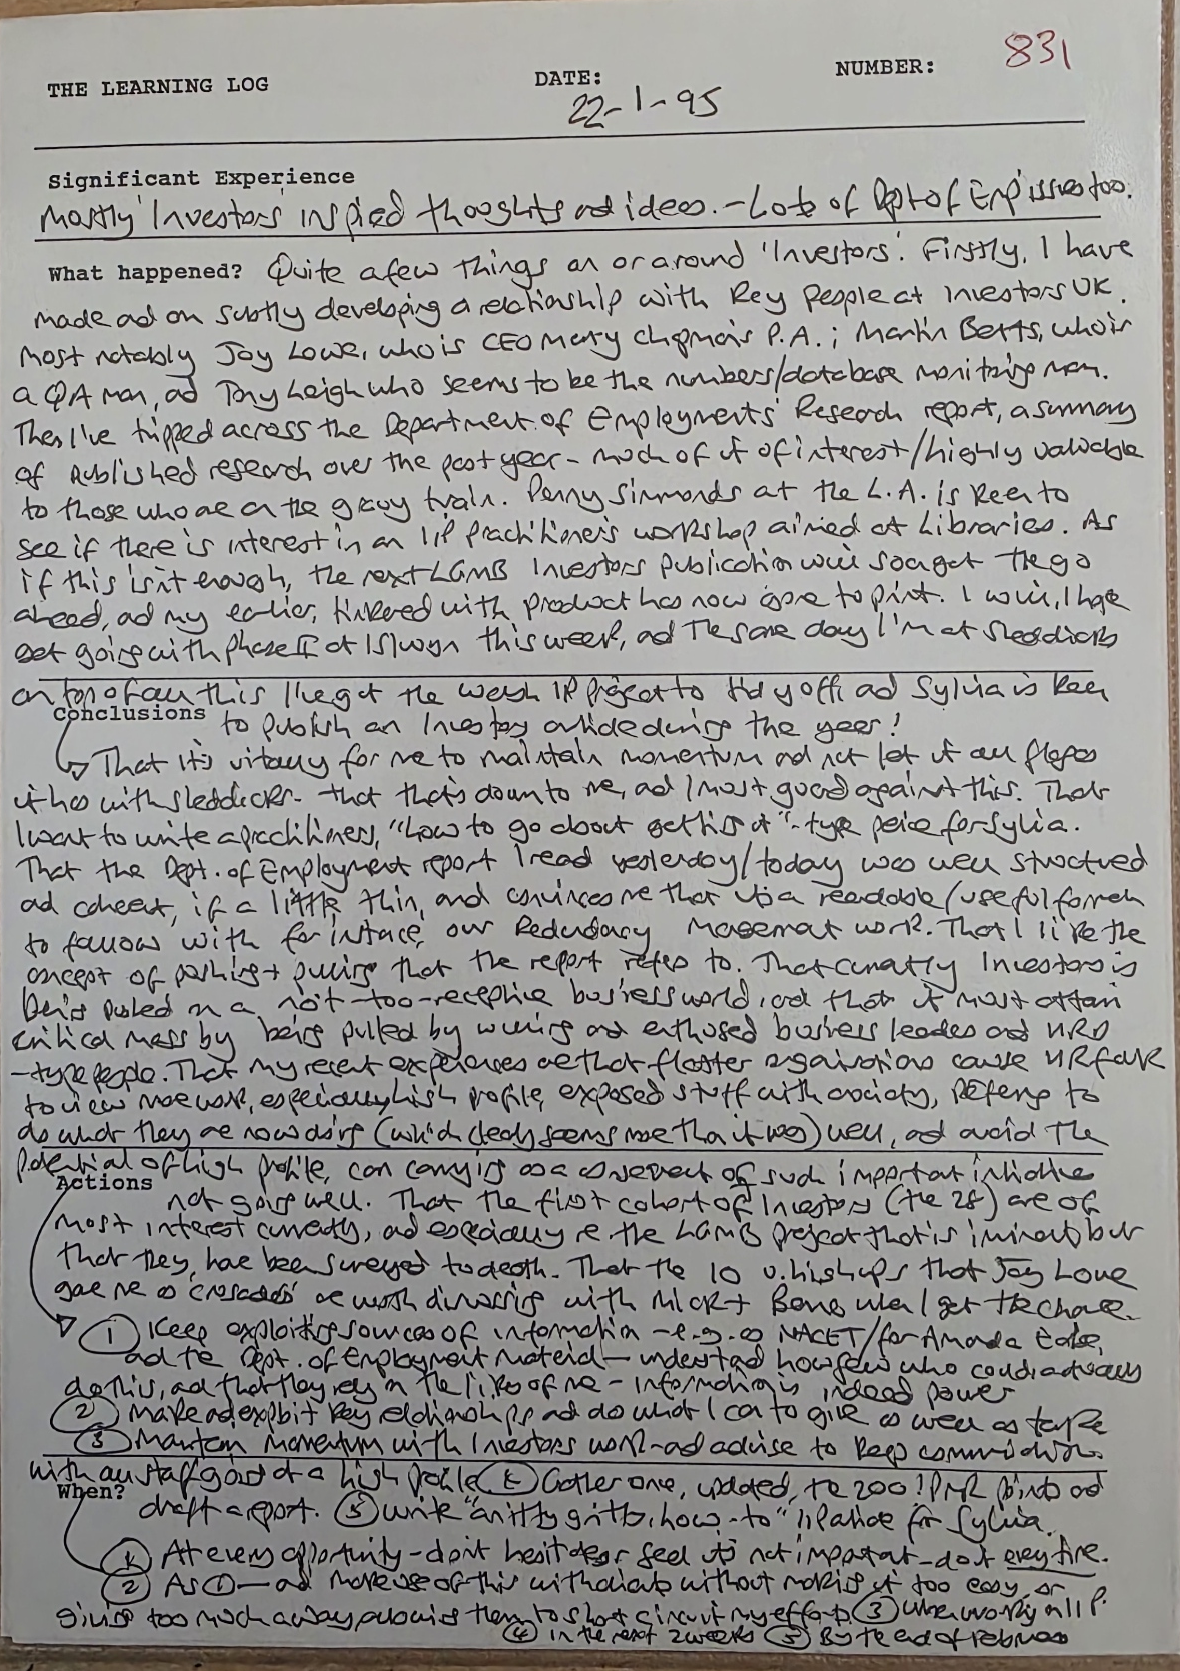 THE LEARNING LOG DATE: NUMBER: 831
22-1-95
Significant Experience
Mostly 'Investors' inspired thoughts and ideas. - Lots of Dept of Emp issues too.
What happened? Quite a few things on or around 'Investors'. Firstly, I have
made and on subtly developing a relationship with key people at Investors UK.
most notably Joy Lowe, who is CEO Mary Chapman's P.A.; Martin Betts, who is
a QA man, and Tony Leigh who seems to be the numbers/database monitoring man.
Then I've tripped across the Department of Employments' Research report, a summary
of published research over the past year - much of it of interest/highly valuable
to those who are on the gravy train. Penny Simmonds at the L.A. is keen to
see if there is interest in an IIP practitioner's workshop aimed at Libraries. As
if this isn't enough, the next LGMB Investors publication will soon get the go
ahead, and my earlier, tinkered with product has now gone to print. I will, I hope
get going with phase II at Islwyn this week, and the same day I'm at Sleddicks
on top of all this I've got the Welsh IIP project to tidy off, and Sylvia is keen
Conclusions to publish an Investors article during the year!
That it's vitally for me to maintain momentum and not let it all flop as
it has with Sleddicks - that that's down to me, and I must guard against this. That
I want to write a practitioners, "how to go about getting it" - type peice for Sylvia.
That the Dept. of Employment report I read yesterday/today was well structured
and coherent, if a little thin, and convinces me that it's a readable/useful format
to follow with for instance, our Redundancy Management work. That I like the
concept of pushing + pulling that the report refers to. That currently Investors is
being pushed on a not-too-receptive business world, and that it must attain
critical mass by being pulled by willing and enthused business leaders and HRD
-type people. That my recent experiences are that flatter organisations cause HR folk
to view more work, especially high profile, exposed stuff with anxiety, prefering to
do what they are now doing (which clearly seems more than it was) well, and avoid the
potential of high profile, can carrying as a consequent of such important initiative
Actions not going well. That the first cohort of Investors (the 28) are of
most interest currently, and especially re the LGMB project that is imminent, but
that they, have been surveyed to death. That the 10 that Joy Lowe
gave me as 'crusades' are worth discussing with Mick + when I get the chance.
① Keep exploiting sources of information - e.g. as NACETT/for Amanda
and the Dept. of Employment material - understand how few who could actually
do this, and that they rely on the likes of me - information is indeed power
② Make and exploit key relationships and do what I can to give as well as take
③ Maintain momentum with Investors work - and advise to keep communication
with all staff going at a high profile ④ Gather one, updated, the 200! PMR points and
When? draft a report. ⑤ Write "nitty gritty, how-to" IIP article for Sylvia.
① At every opportunity - don't hesitate or feel it's not important - do it every time.
② As ① - and make use of this without making it too easy, or
giving too much away, allowing them to short circuit my efforts ③ When working on IIP.
④ In the next 2 weeks ⑤ By the end of February